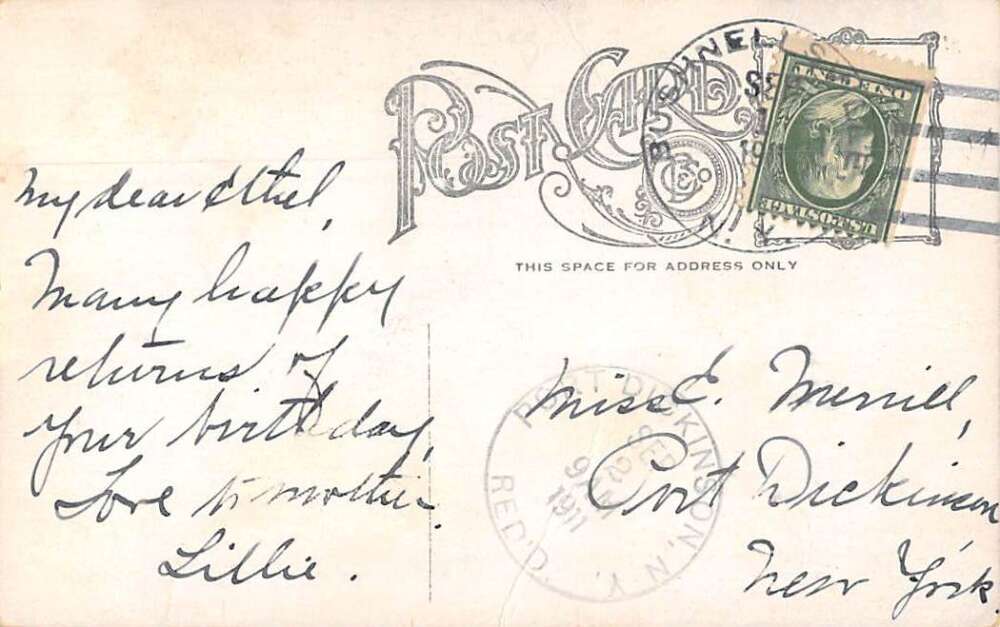 POST CARD
Co
THIS SPACE FOR ADDRESS ONLY
N. Y.
U.S. POSTAGE
ONE CENT
My dear Ethel,
Many happy
returns of
your birthday.
Love to mother.
Lillie.
PORT DICKINSON, N.Y.
SEP
2
9 AM
1911
REC'D.
Miss E. Merrill,
Port Dickinson
New York.